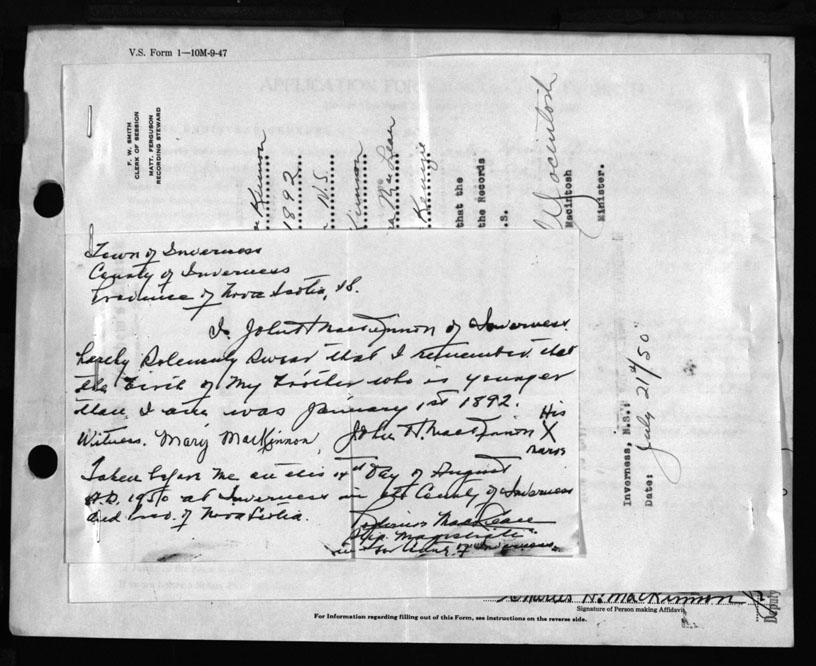 V.S. Form 1—10M-9-47
F. W. SMITH
CLERK OF SESSION
MATT. FERGUSON
RECORDING STEWARD
Kinnon
1892
N.S.
Kinnon
MacLean
Kenzie
that the
the Records
.S.
Macintosh
Macintosh
Minister.
Town of Inverness
County of Inverness
Province of Nova Scotia, SS.
I John H MacKinnon of Inverness
hereby Solemnly Swear that I remember that
the Birth of My Brother who is younger
than I am was January 1st 1892.
His
Witness. Mary MacKinnon, John H. MacKinnon X
Mark
Taken before me on this Day of August
A.D. 1950 at Inverness in the County of Inverness
and Prov. of Nova Scotia.
in the County of Inverness.
Inverness, N.S.:
Date: July 21st/50
Charles N. MacKinnon
Signature of Person making Affidavit
Deputy
For Information regarding filling out of this Form, see instructions on the reverse side.